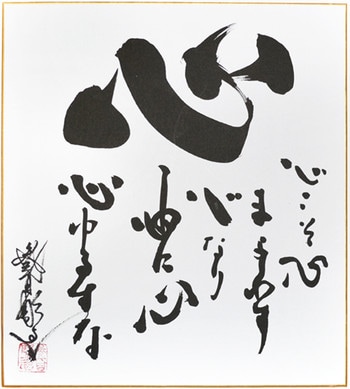 心
心こそ心
まよわす
心なり
心に心
心ゆるすな